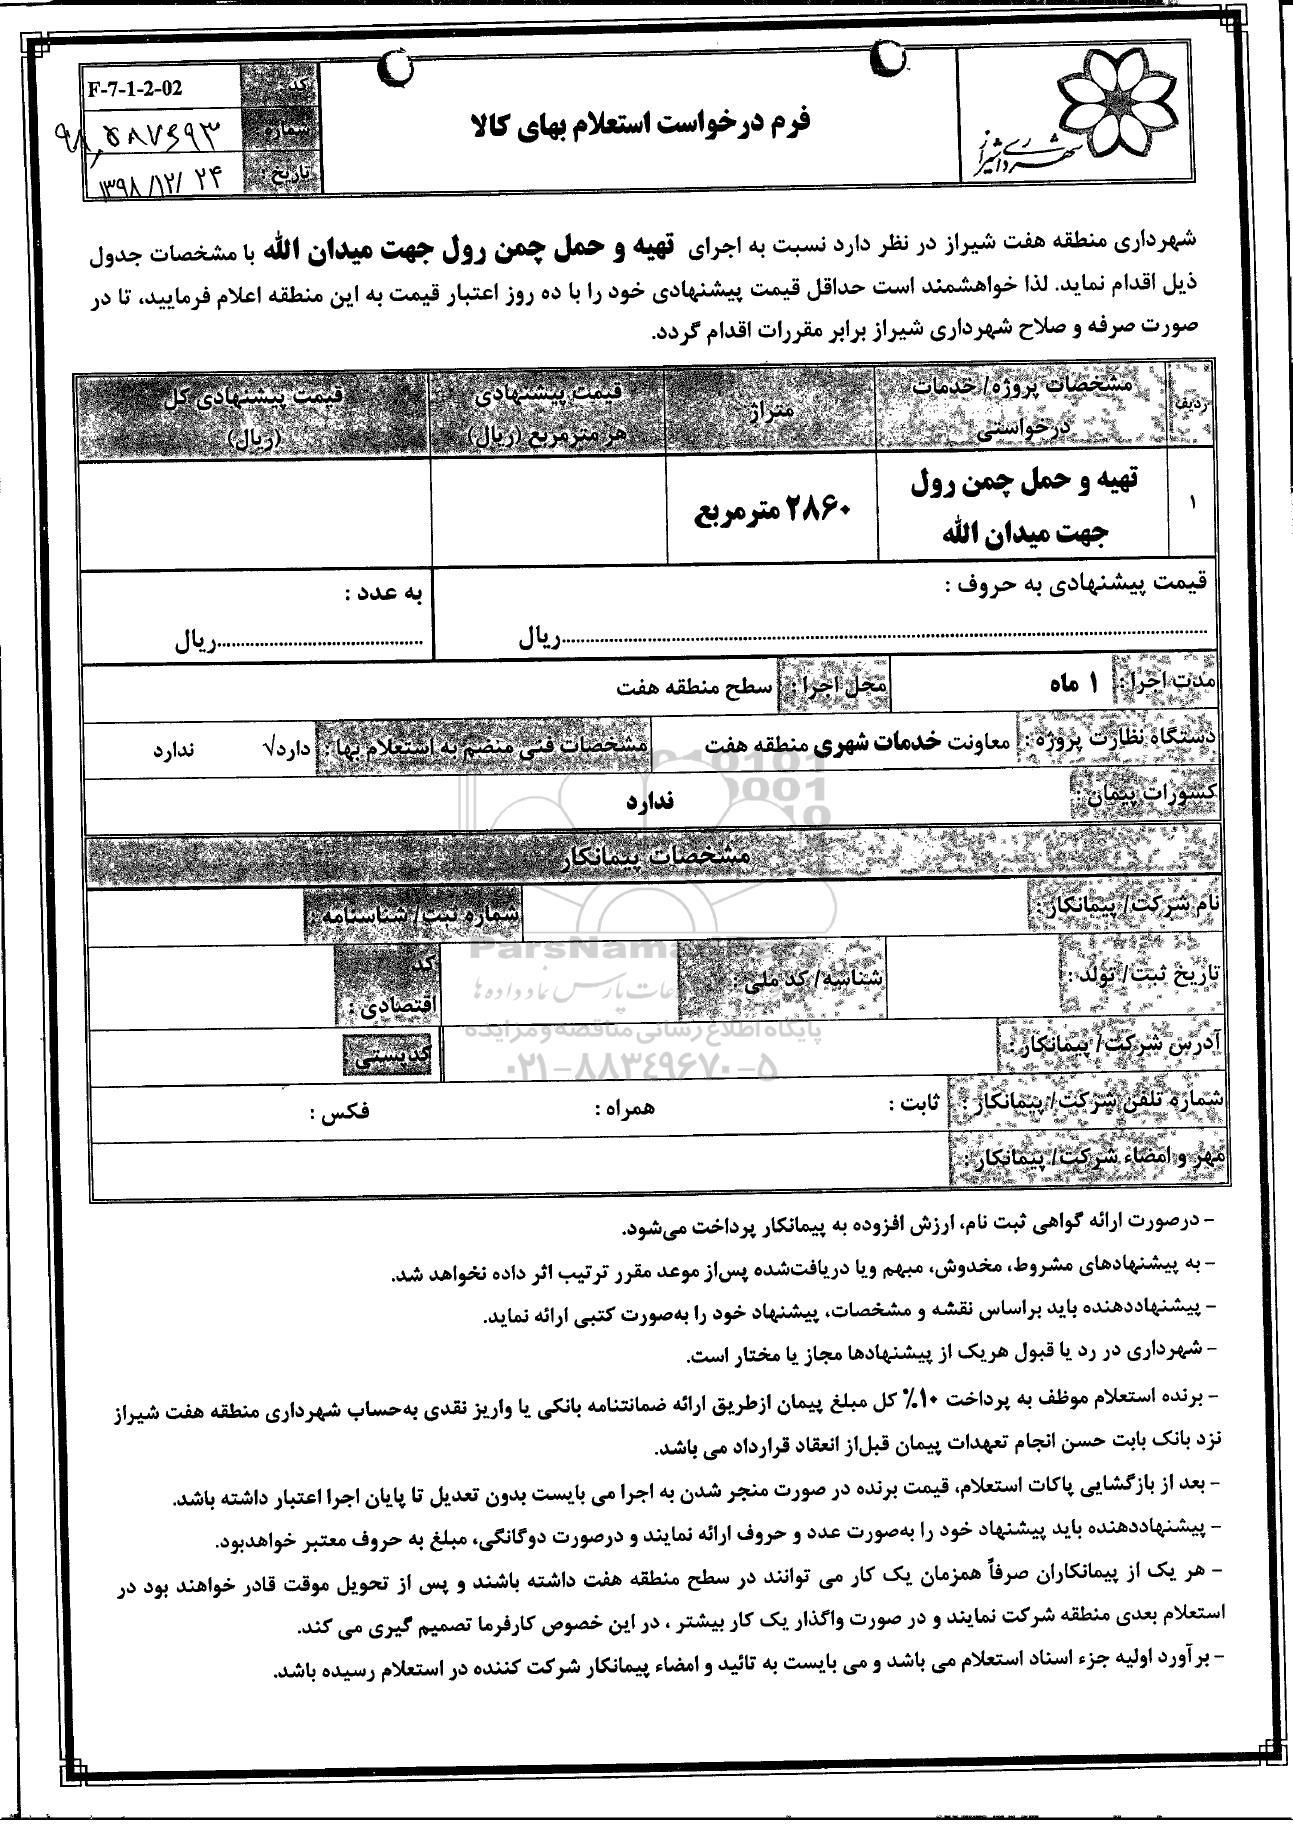 شهرداری شیراز
فرم درخواست استعلام بهای کالا
کد: F-7-1-2-02
شماره: ۹۸,۵۸۷۶۹۳
تاریخ: ۱۳۹۸/۱۲/۲۴
شهرداری منطقه هفت شیراز در نظر دارد نسبت به اجرای تهیه و حمل چمن رول جهت میدان الله با مشخصات جدول
ذیل اقدام نماید. لذا خواهشمند است حداقل قیمت پیشنهادی خود را با ده روز اعتبار قیمت به این منطقه اعلام فرمایید، تا در
صورت صرفه و صلاح شهرداری شیراز برابر مقررات اقدام گردد.
ردیف
مشخصات پروژه/ خدمات
درخواستی
متراژ
قیمت پیشنهادی
هر مترمربع (ریال)
قیمت پیشنهادی کل
(ریال)
۱
تهیه و حمل چمن رول
جهت میدان الله
۲۸۶۰ مترمربع
قیمت پیشنهادی به حروف :
به عدد :
................ریال
................ریال
مدت اجرا : ۱ ماه
محل اجرا : سطح منطقه هفت
دستگاه نظارت پروژه : معاونت خدمات شهری منطقه هفت
مشخصات فنی منضم به استعلام بها : دارد√ ندارد
کسورات پیمان : ندارد
مشخصات پیمانکار
نام شرکت/ پیمانکار :
شماره ثبت/ شناسنامه :
تاریخ ثبت/ تولد :
شناسه/ کد ملی :
کد
اقتصادی :
آدرس شرکت/ پیمانکار :
کدپستی
شماره تلفن شرکت/ پیمانکار : ثابت : همراه : فکس :
مهر و امضاء شرکت/ پیمانکار :
پایگاه اطلاع رسانی مناقصه و مزایده
۰۲۱-۸۸۳۴۹۶۷۰-۵
- درصورت ارائه گواهی ثبت نام، ارزش افزوده به پیمانکار پرداخت می‌شود.
- به پیشنهادهای مشروط، مخدوش، مبهم ویا دریافت‌شده پس‌از موعد مقرر ترتیب اثر داده نخواهد شد.
- پیشنهاددهنده باید براساس نقشه و مشخصات، پیشنهاد خود را به‌صورت کتبی ارائه نماید.
- شهرداری در رد یا قبول هریک از پیشنهادها مجاز یا مختار است.
- برنده استعلام موظف به پرداخت ۱۰% کل مبلغ پیمان ازطریق ارائه ضمانتنامه بانکی یا واریز نقدی به‌حساب شهرداری منطقه هفت شیراز
نزد بانک بابت حسن انجام تعهدات پیمان قبل‌از انعقاد قرارداد می باشد.
- بعد از بازگشایی پاکات استعلام، قیمت برنده در صورت منجر شدن به اجرا می بایست بدون تعدیل تا پایان اجرا اعتبار داشته باشد.
- پیشنهاددهنده باید پیشنهاد خود را به‌صورت عدد و حروف ارائه نمایند و درصورت دوگانگی، مبلغ به حروف معتبر خواهدبود.
- هر یک از پیمانکاران صرفاً همزمان یک کار می توانند در سطح منطقه هفت داشته باشند و پس از تحویل موقت قادر خواهند بود در
استعلام بعدی منطقه شرکت نمایند و در صورت واگذار یک کار بیشتر ، در این خصوص کارفرما تصمیم گیری می کند.
- برآورد اولیه جزء اسناد استعلام می باشد و می بایست به تائید و امضاء پیمانکار شرکت کننده در استعلام رسیده باشد.